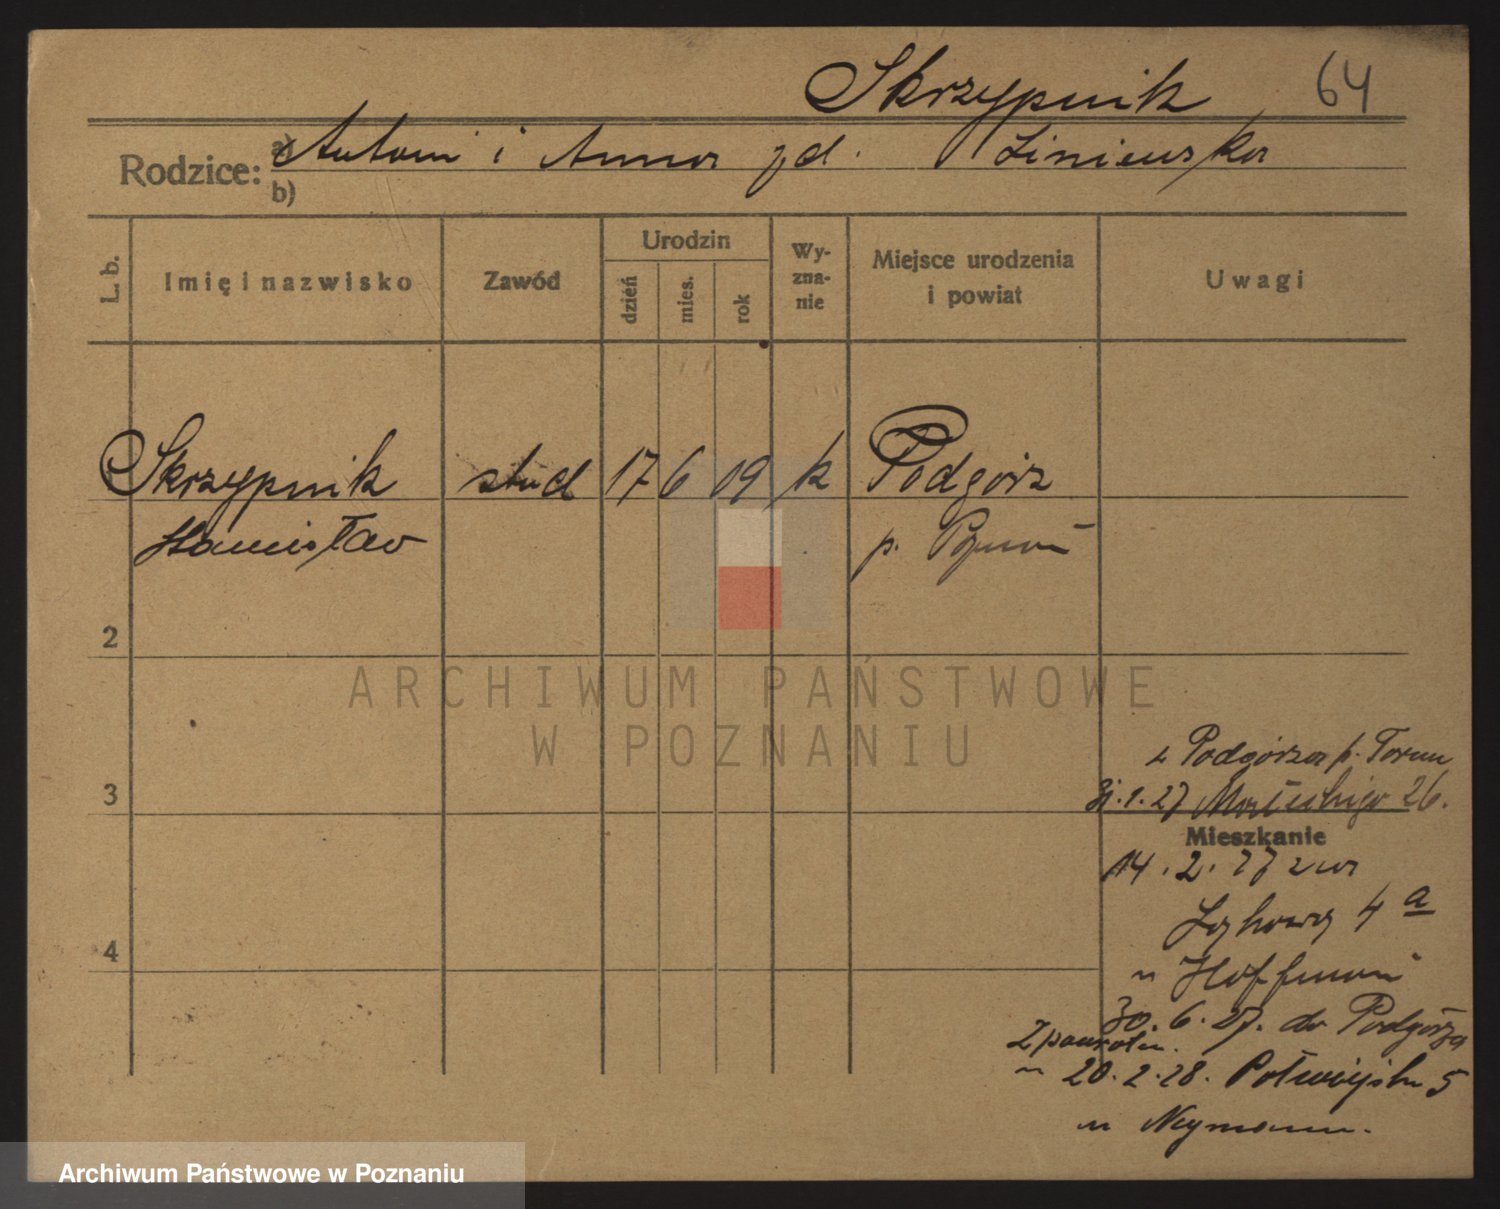 Skrzypnik 64
Rodzice: a) Antoni i Anna zd. Liniewska
b)
L. b.
Imię i nazwisko
Zawód
Urodzin
dzień
mies.
rok
Wy-
zna-
nie
Miejsce urodzenia
i powiat
Uwagi
Skrzypnik stud 17 6 09 k Podgórz
Stanisław p.
2
ARCHIWUM PAŃSTWOWE
W POZNANIU
z Podgórza p. Torun
3 31.1.27 26.
Mieszkanie
14.2.27
Łąkowa 4 a
4
u Hoffmann
30.6.27. do Podgórza
Z powrotem
20.2.28. Półwiejska 5
u Neymann.
Archiwum Państwowe w Poznaniu